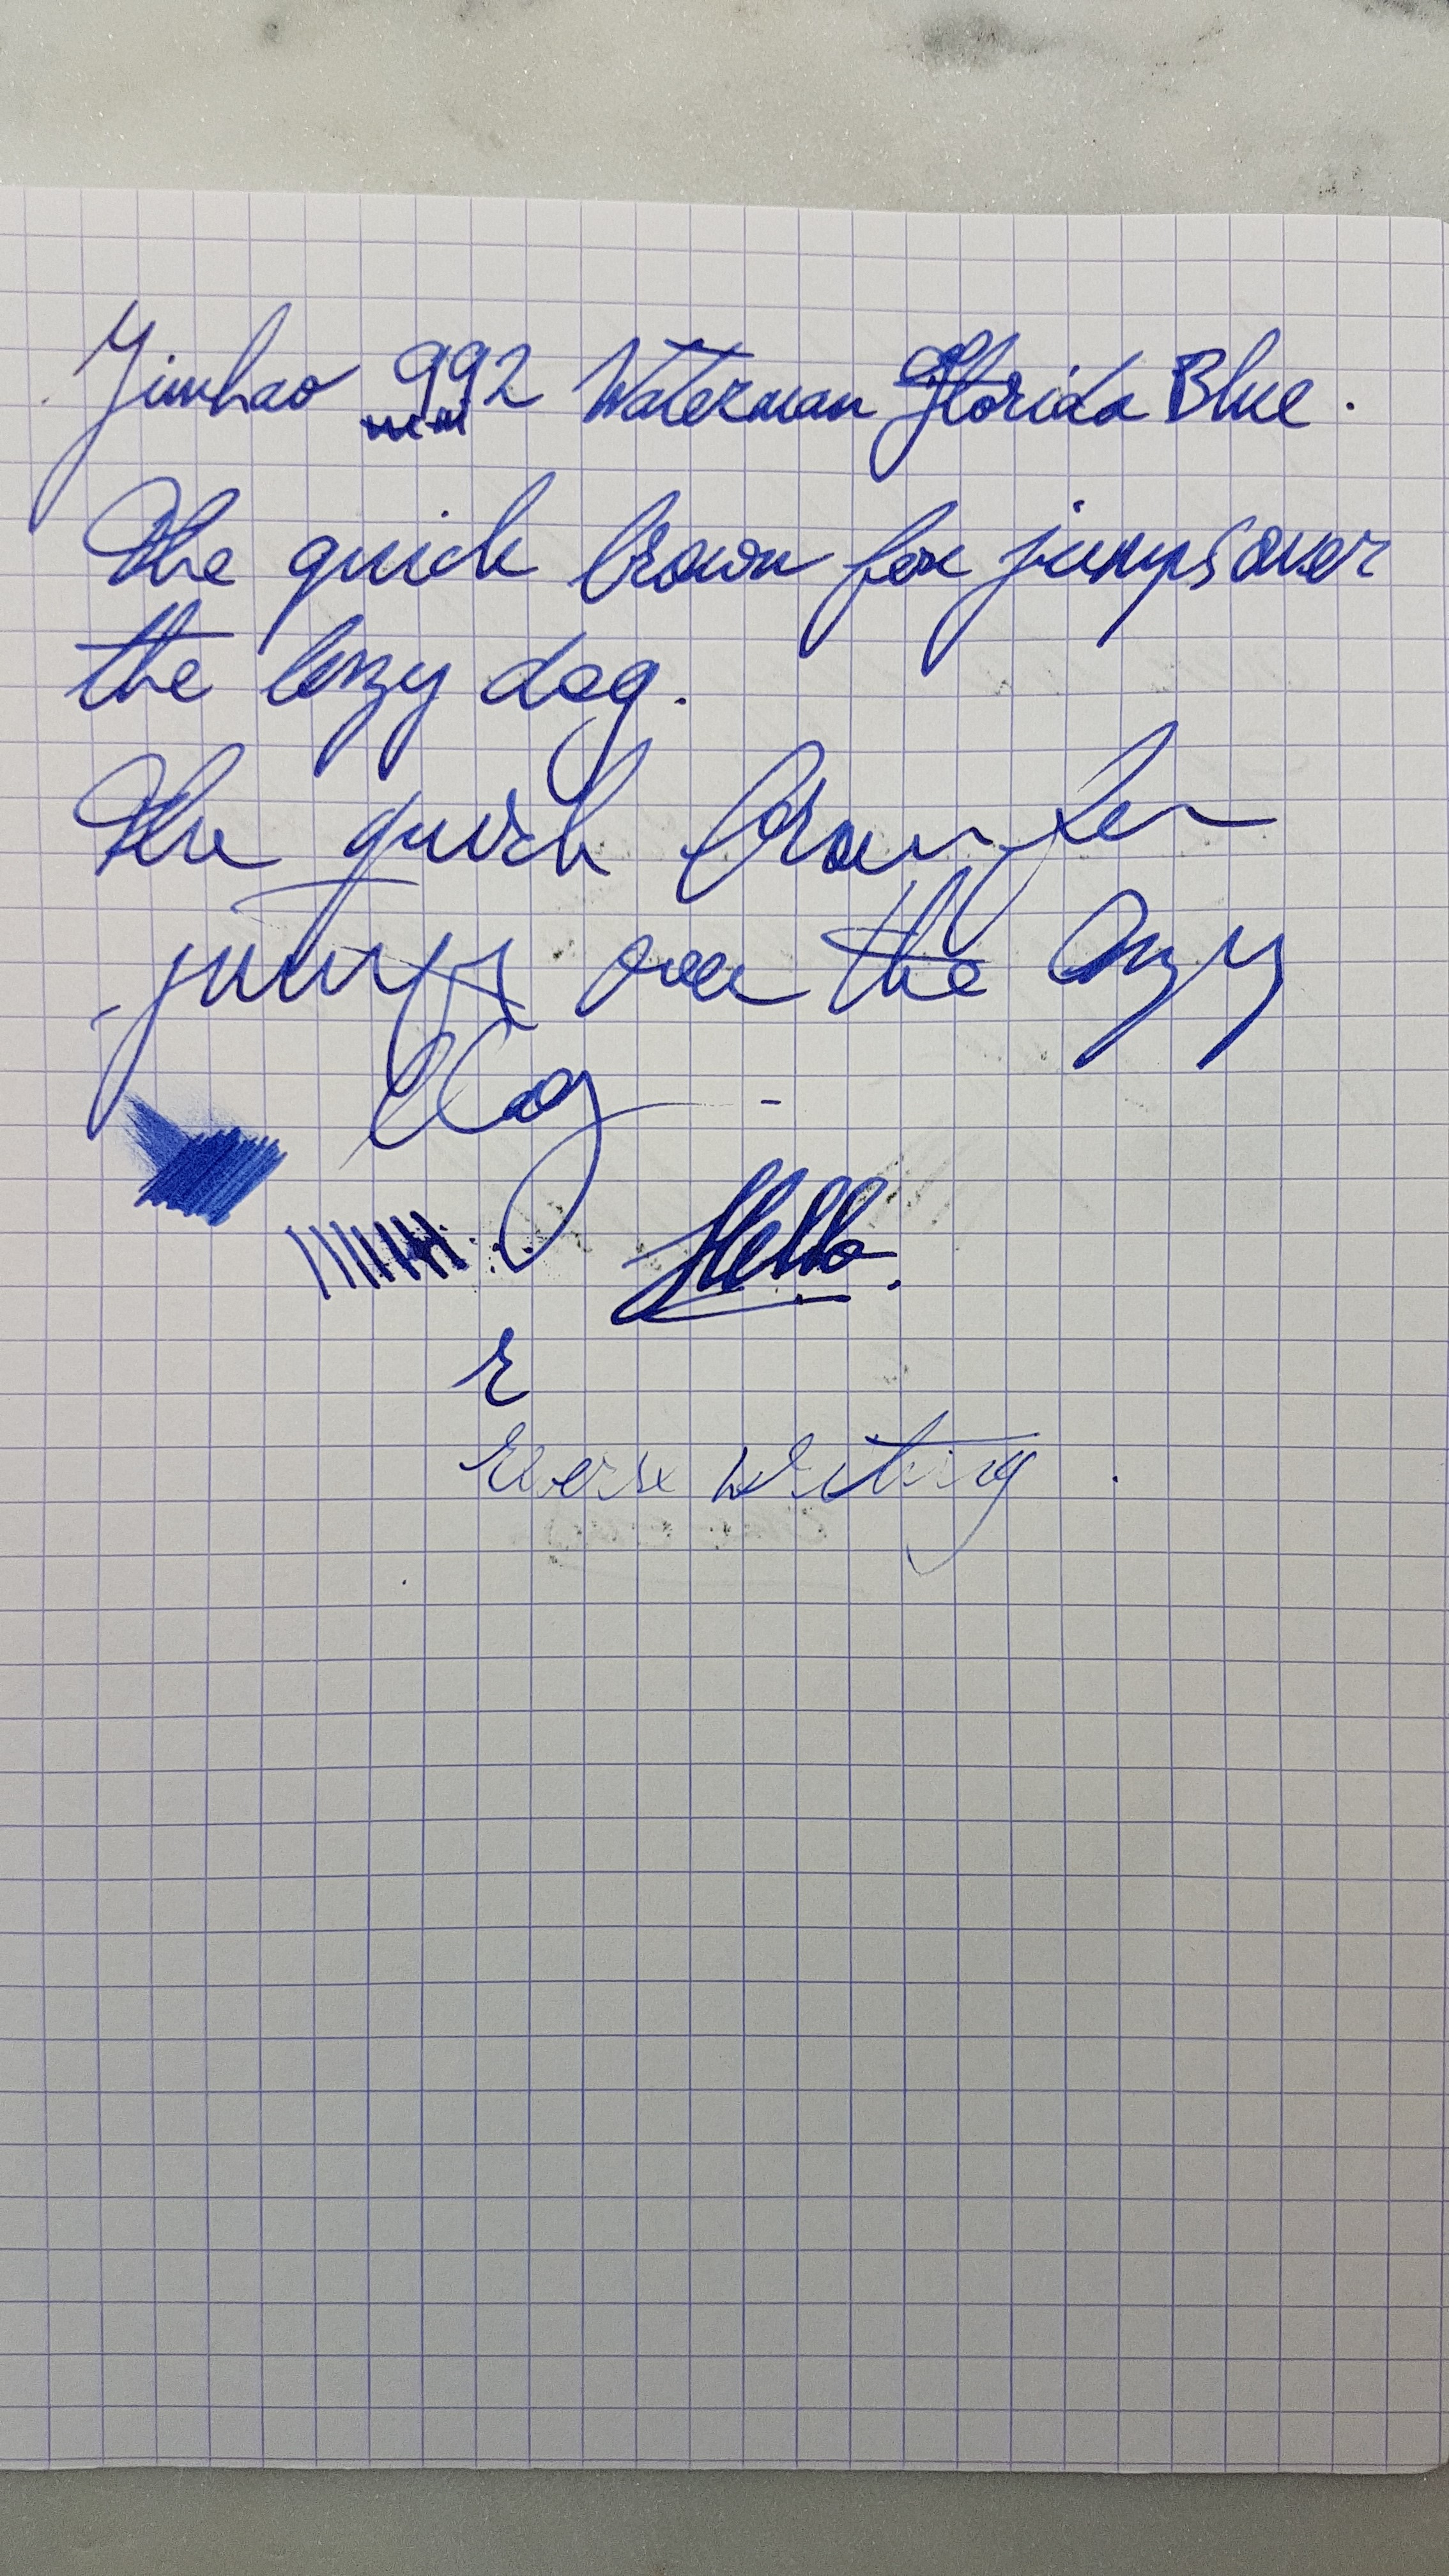 Jinhao 992 Waterman Florida Blue.
The quick brown fox jumps over
the lazy dog.
The quick brown fox
jumps over the lazy
dog -
Hello.
r
Reverse writing.